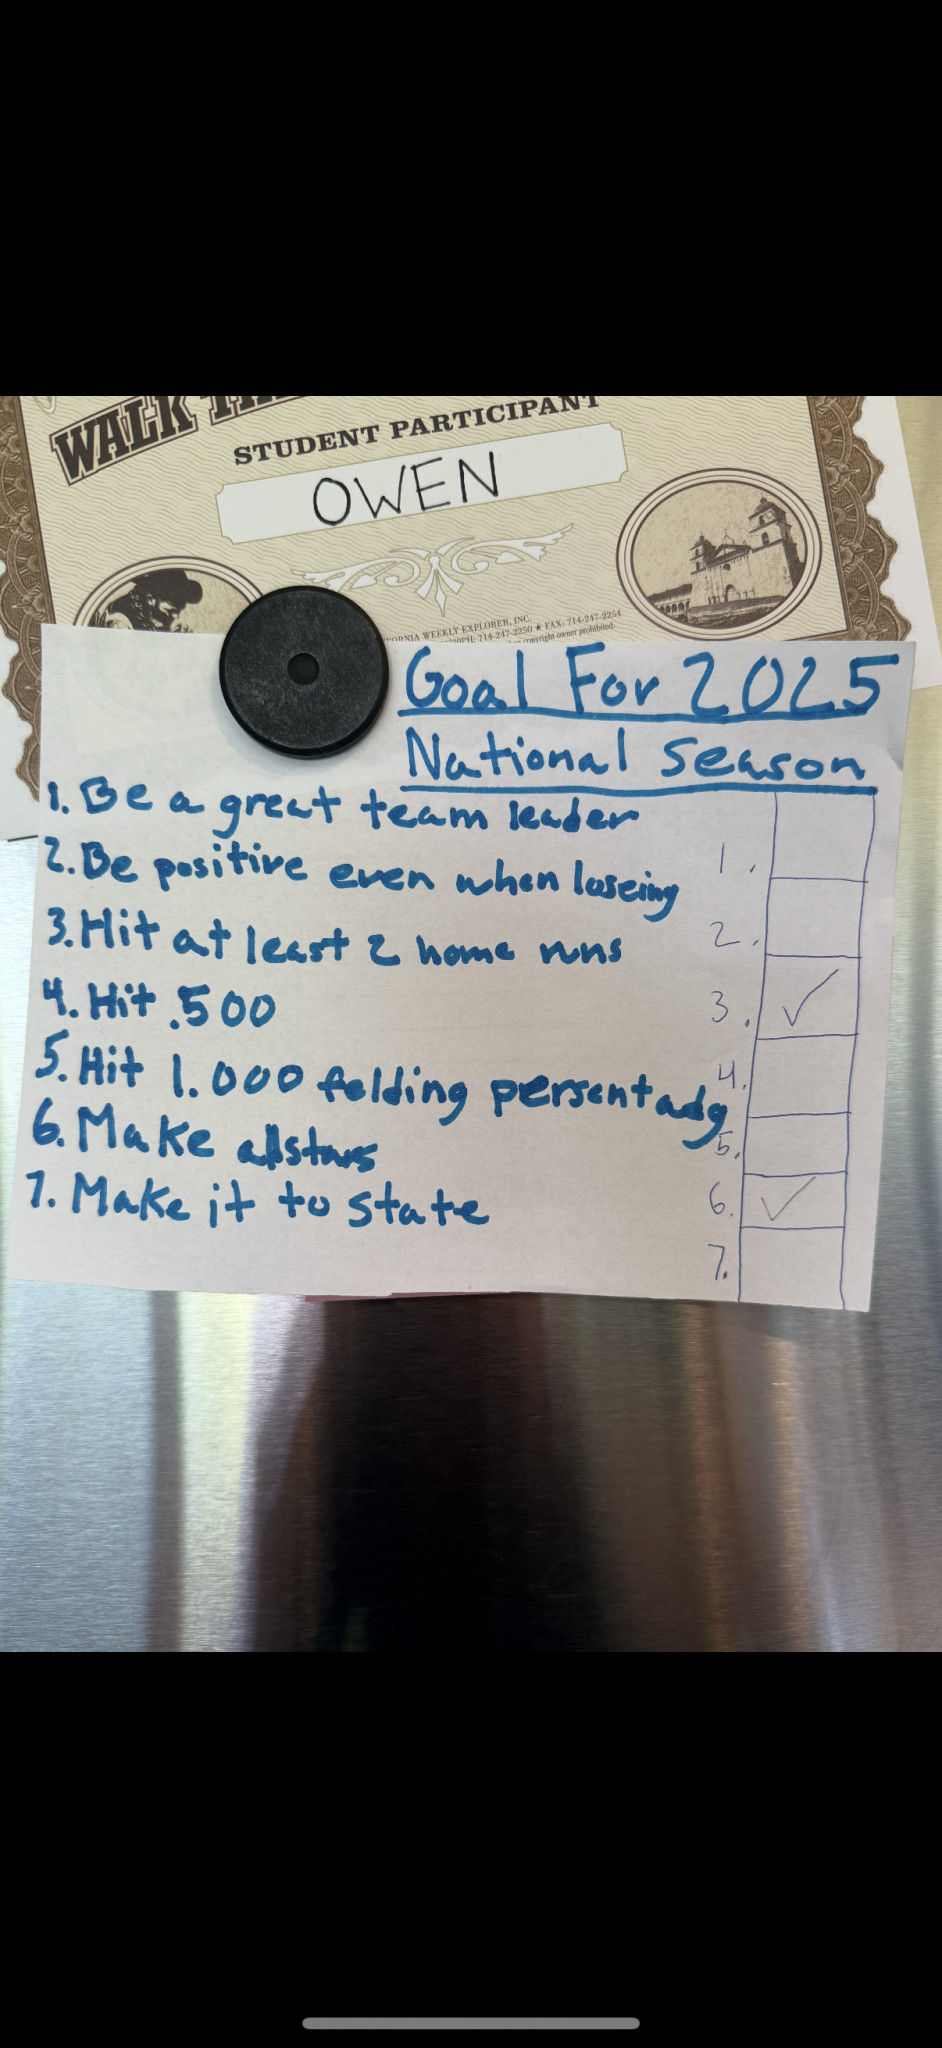 WALK
STUDENT PARTICIPANT
OWEN
WEEKLY EXPLORER, INC.
PH: 714-247-2250 ★ FAX: 714-247-2254
copyright owner prohibited.
Goal For 2025
National Season
1. Be a great team leader
2. Be positive even when loseing
3. Hit at least 2 home runs
4. Hit .500
5. Hit 1.000 felding persentadg
6. Make allstars
7. Make it to state
1.
2.
3. ✓
4.
5.
6. ✓
7.